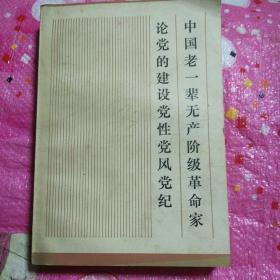 中国老一辈无产阶级革命家
论党的建设党性党风党纪